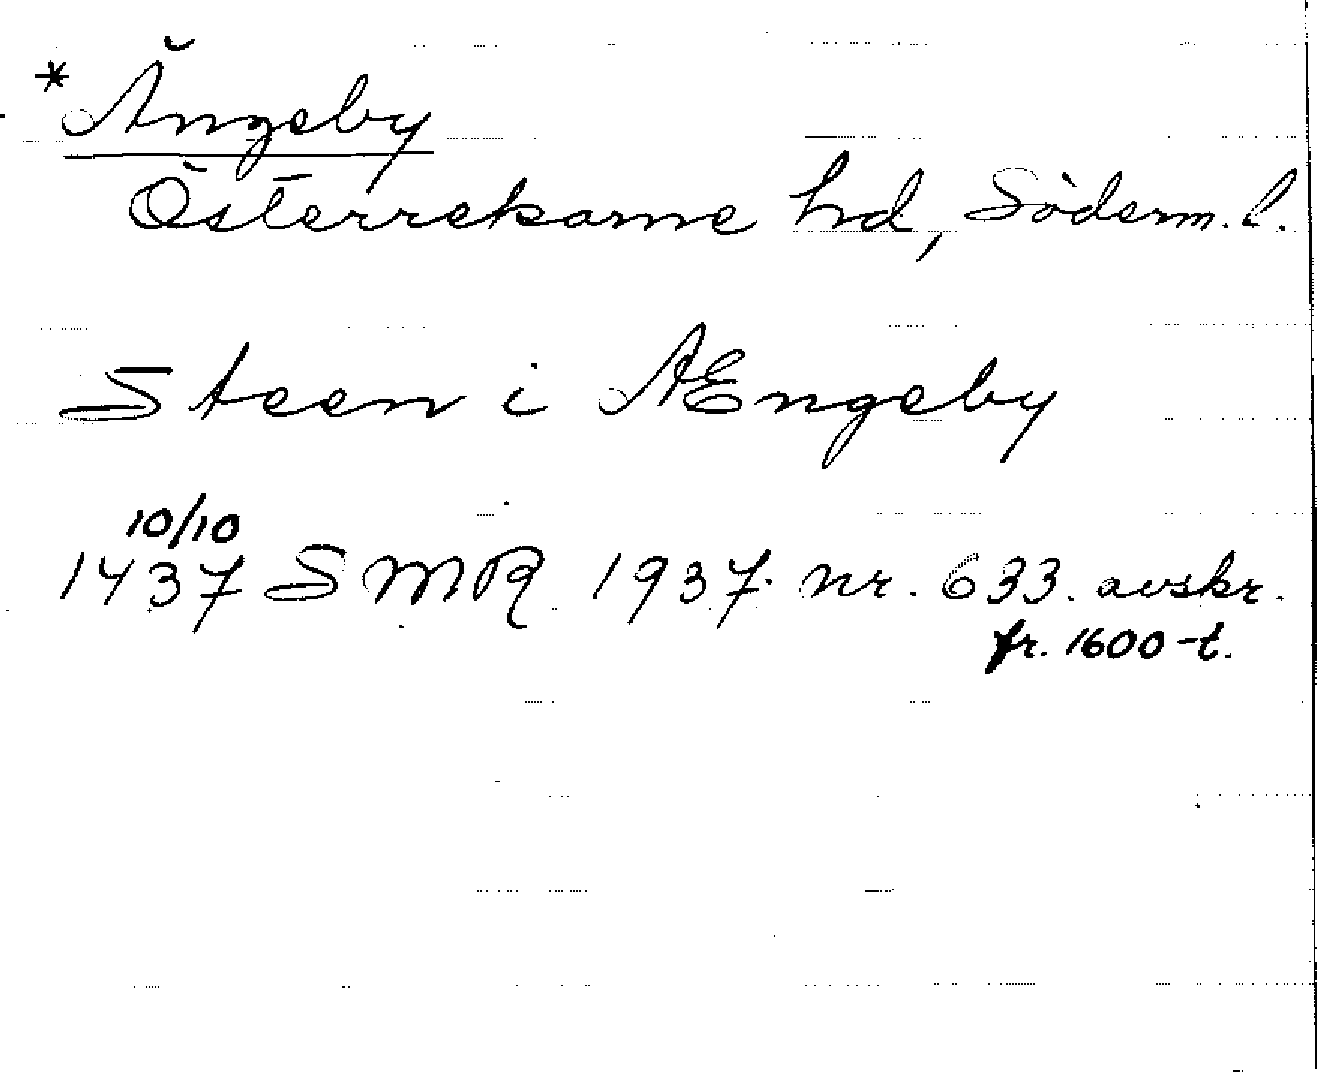 * Ängeby
Österrekarne hd, Söderm. l.
Steen i AEngeby
10/10
1437 SMR 1937. nr. 633. avskr.
fr. 1600-t.